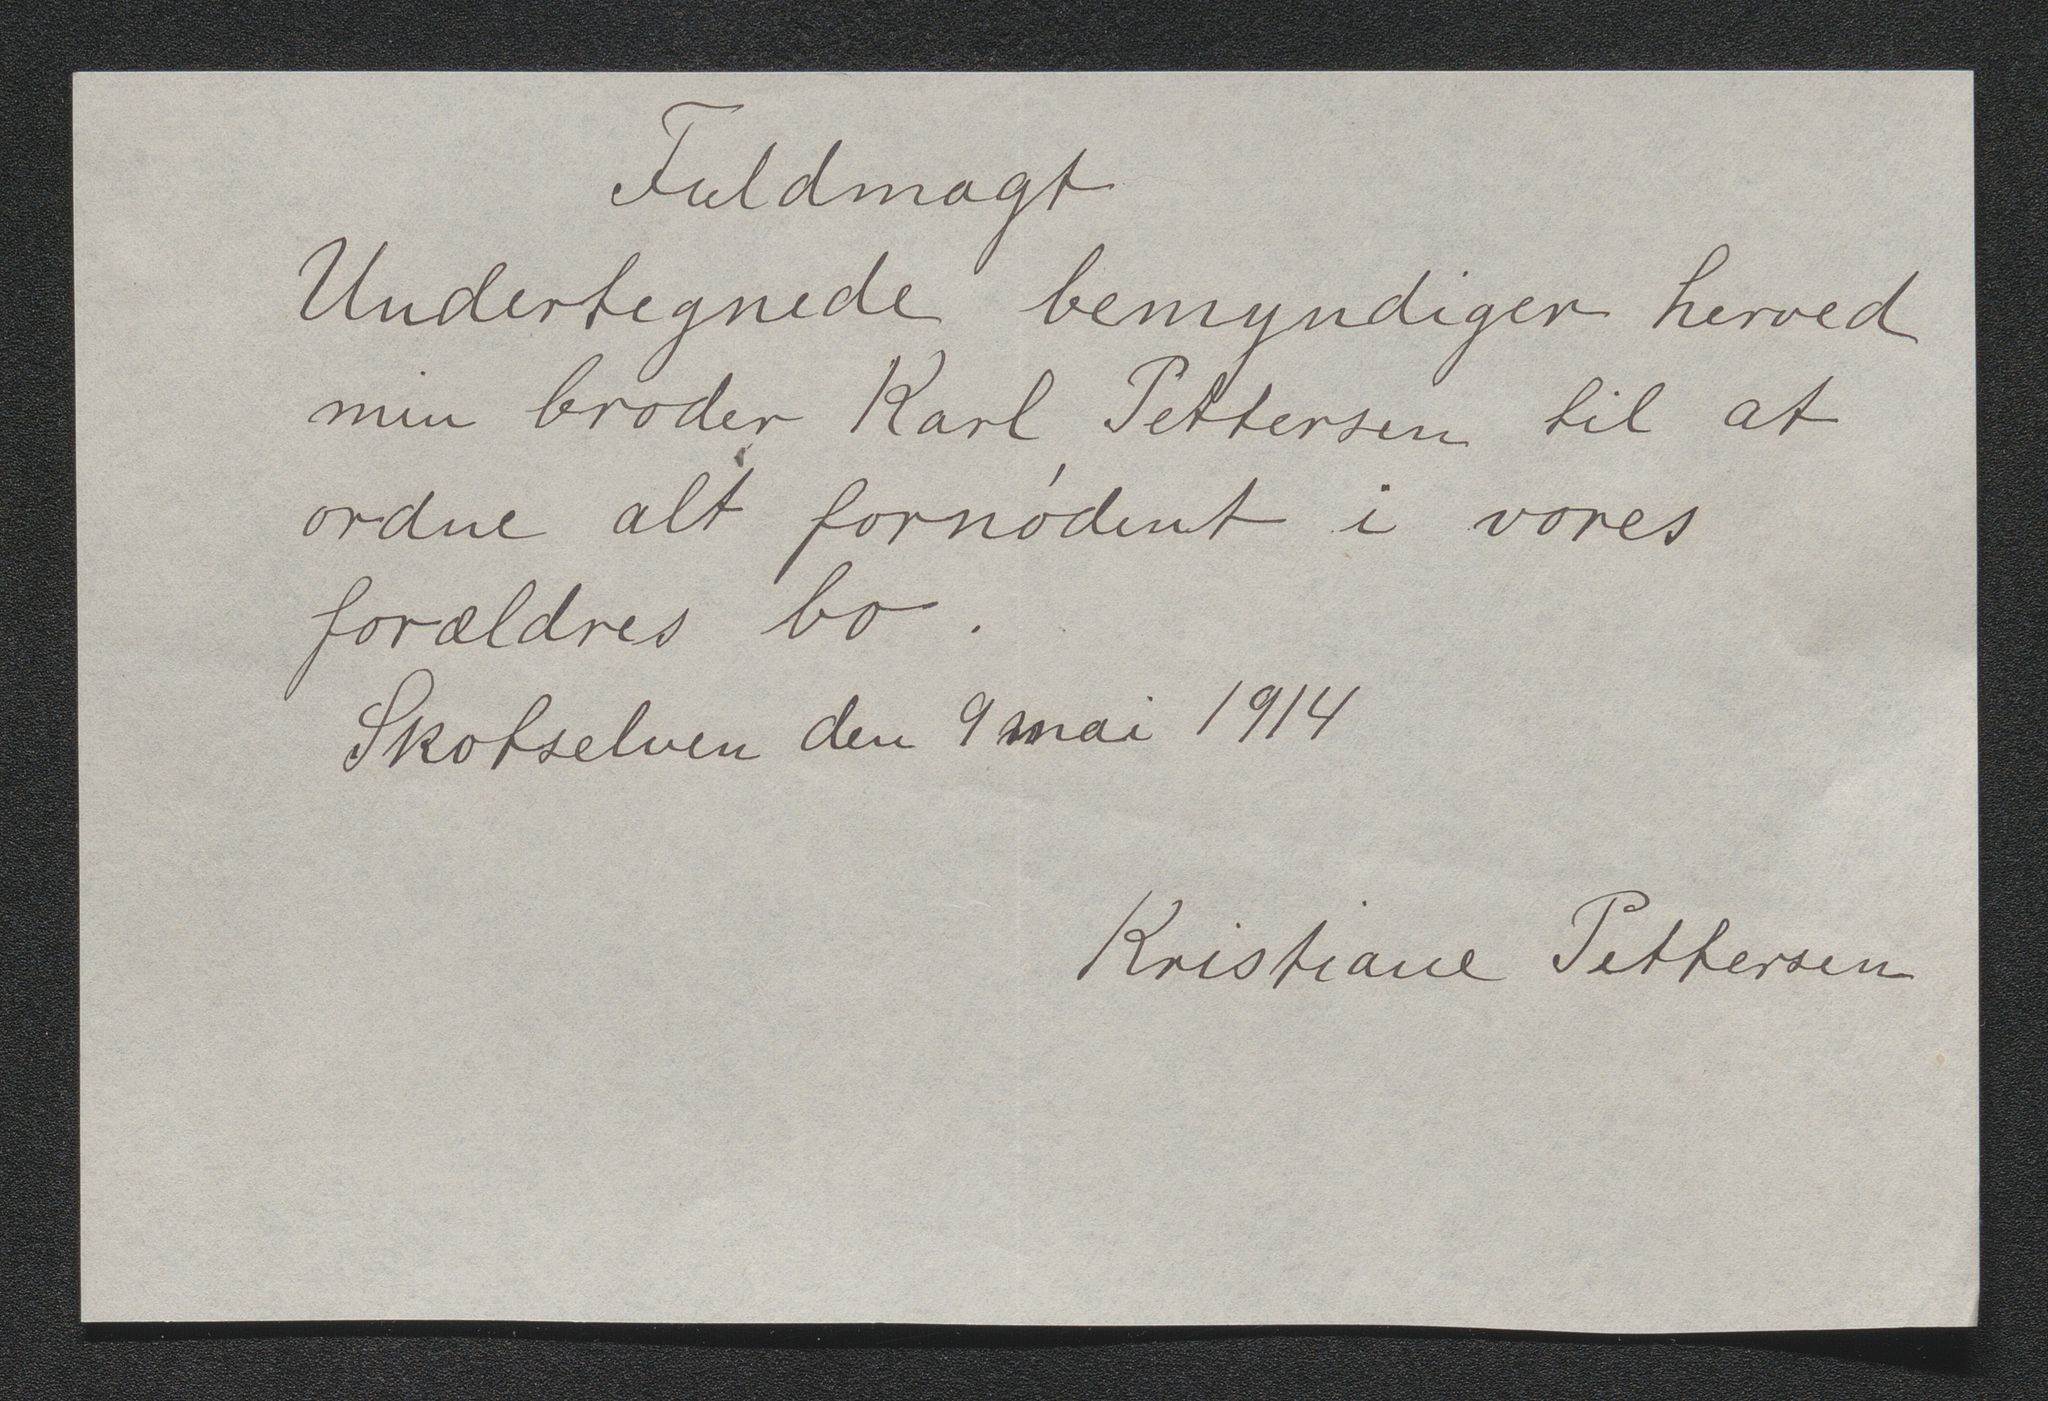 Fuldmagt
Undertegnede bemyndiger herved
min broder Karl Pettersen til at
ordne alt fornódent i vores
forældres bo.
Skotselven den 9 mai 1914
Kristiane Pettersen